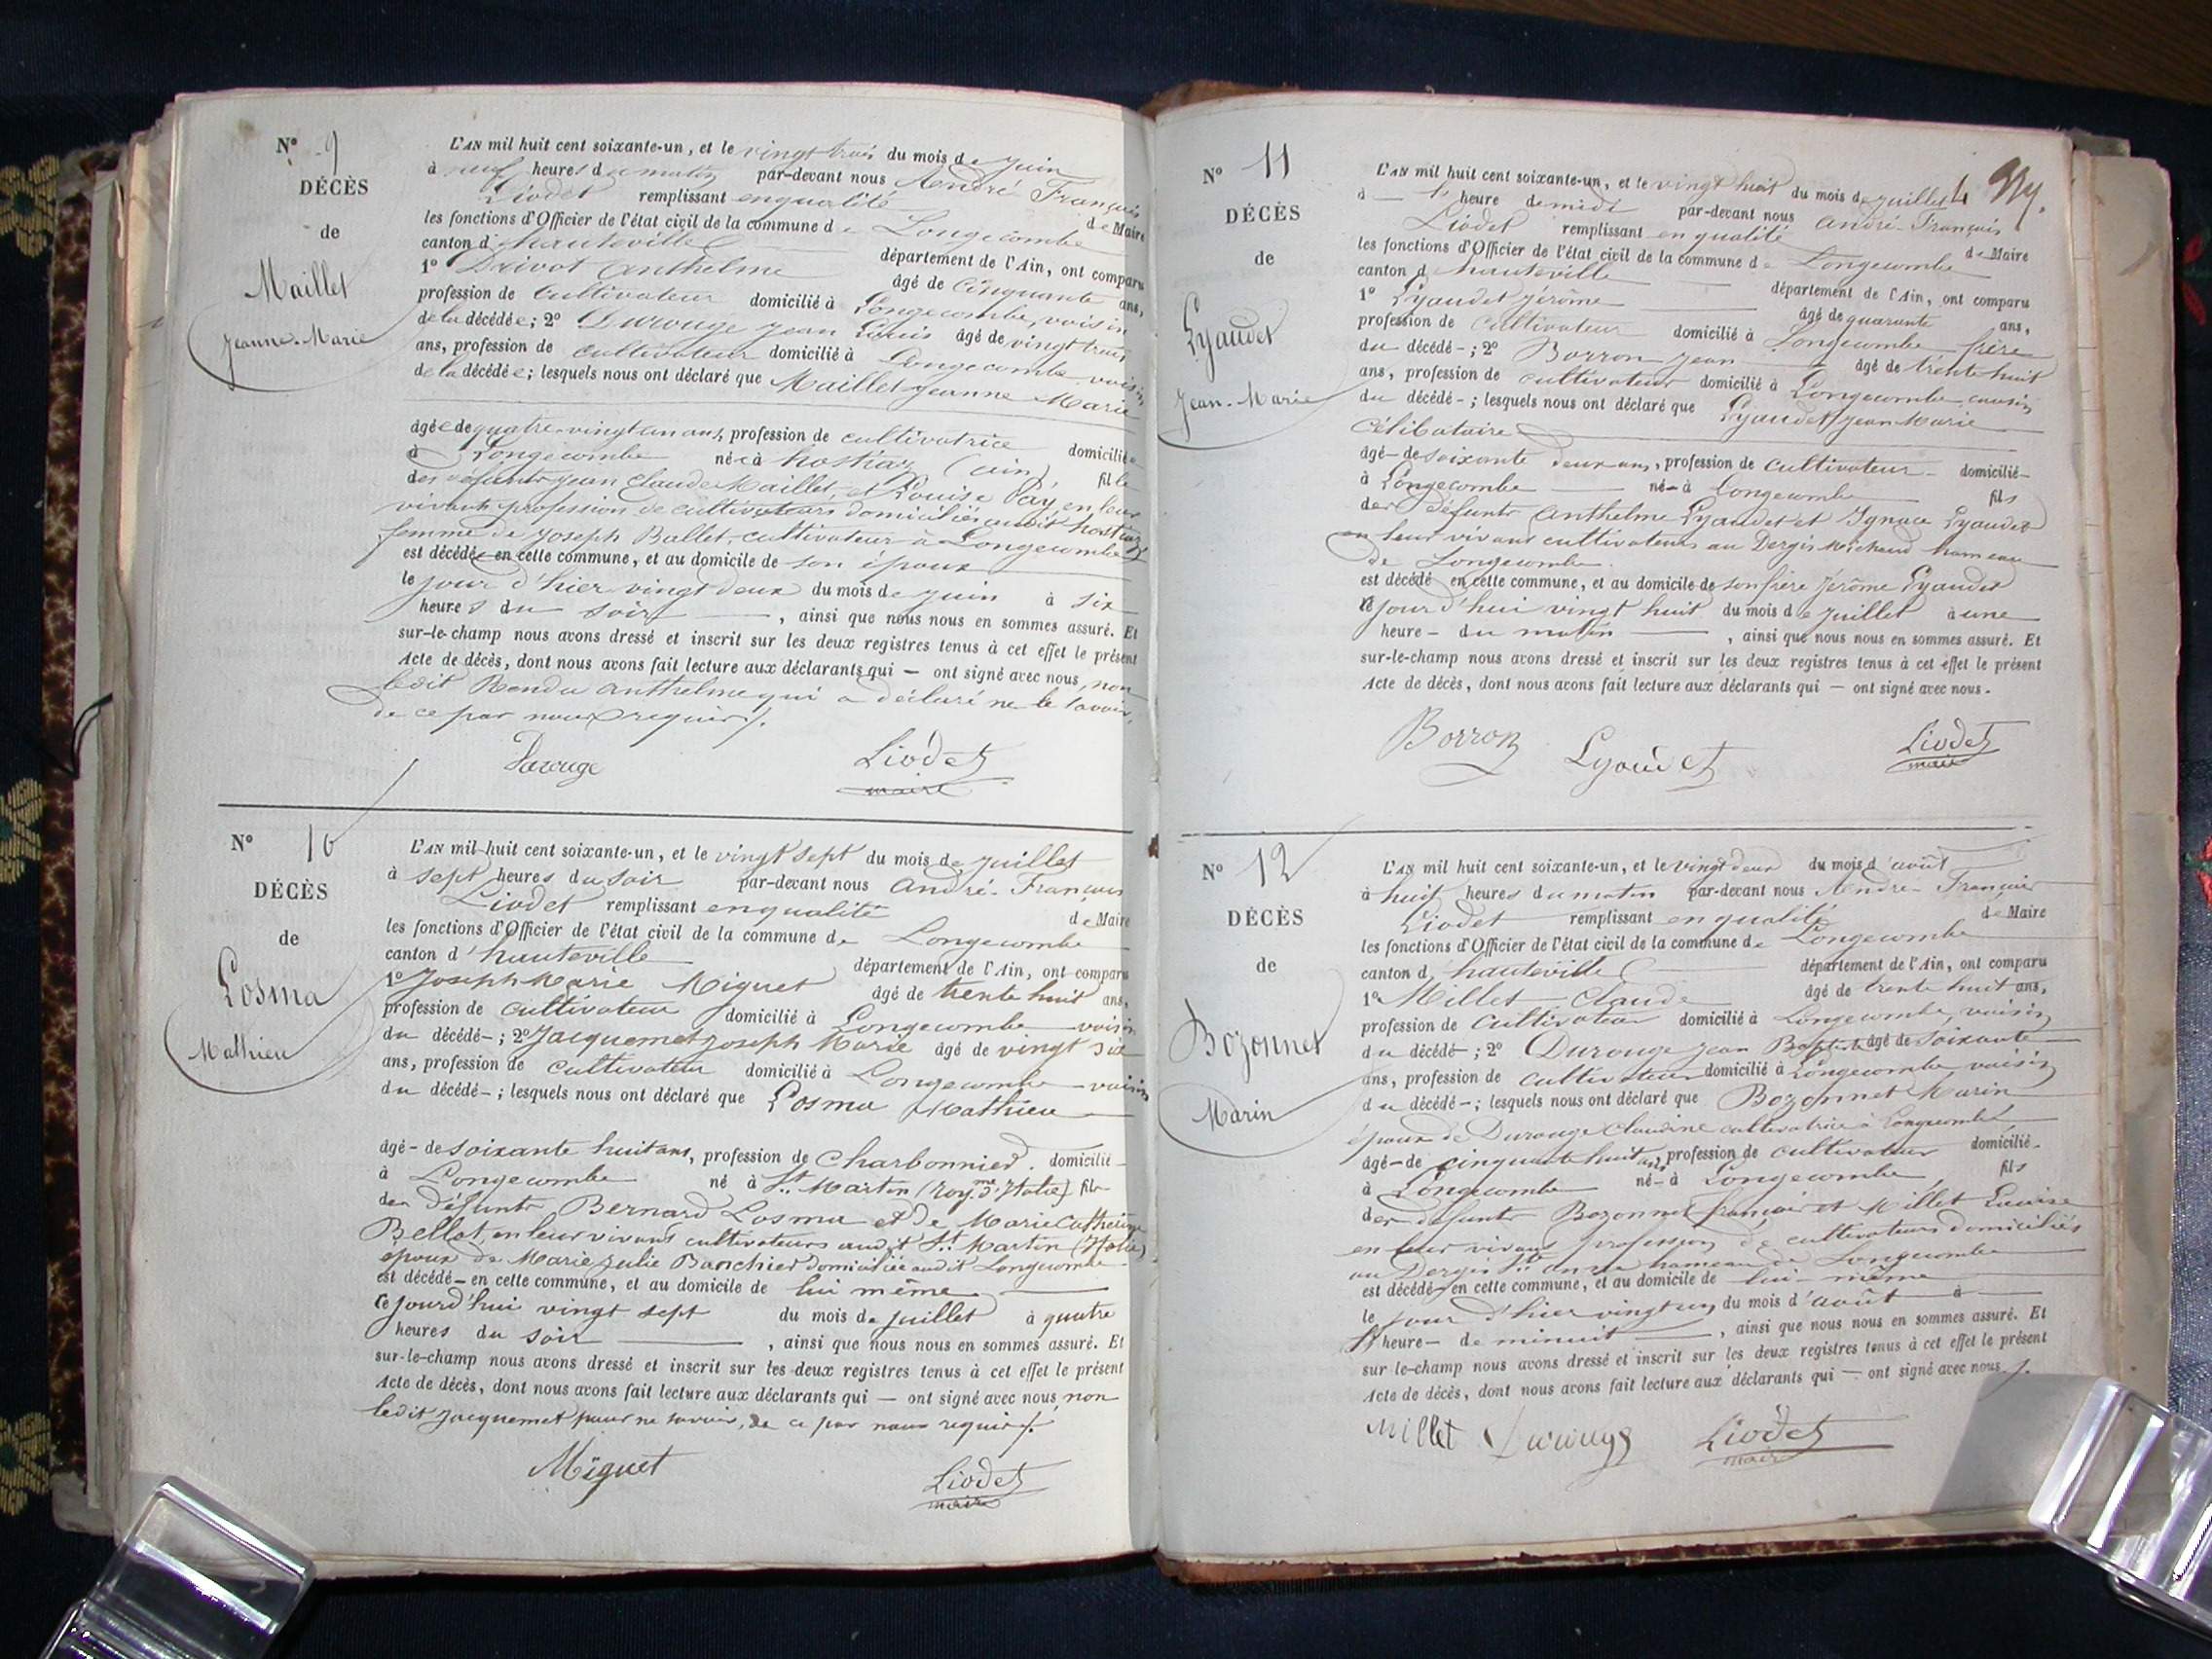 N° 9
DÉCÈS
de
Maillet
Jeanne-Marie
L'AN mil huit cent soixante-un, et le vingt trois du mois de juin
à neuf heures du matin par-devant nous André François
Liodet remplissant en qualité de Maire
les fonctions d'Officier de l'état civil de la commune de Longecombe
canton d'hauteville département de l'Ain, ont comparu
1° Anthelme âgé de Cinquante ans,
profession de Cultivateur domicilié à Longecombe, voisin
de la décédée; 2° Durouge Jean Louis âgé de vingt trois
ans, profession de cultivateur domicilié à Longecombe voisin
de la décédée; lesquels nous ont déclaré que Maillet Jeanne Marie
âgée de quatre-vingt un ans, profession de cultivatrice domiciliée
à Longecombe née à hostiaz (ain) fille
des défunts Jean Claude Maillet et Louise Pay en leur
vivant profession de cultivateurs domiciliés audit hostiaz
femme de Joseph Ballet, cultivateur à Longecombe
est décédée en cette commune, et au domicile de son époux
le jour d'hier vingt deux du mois de juin à six
heures du soir, ainsi que nous nous en sommes assuré. Et
sur-le-champ nous avons dressé et inscrit sur les deux registres tenus à cet effet le présent
Acte de décès, dont nous avons fait lecture aux déclarants qui — ont signé avec nous, non
ledit anthelme qui a déclaré ne le savoir,
de ce par nous requis.
Durouge Liodet
maire
N° 10
DÉCÈS
de
Losma
Mathieu
L'AN mil huit cent soixante-un, et le vingt sept du mois de juillet
à sept heures du soir par-devant nous André-François
Liodet remplissant en qualité de Maire
les fonctions d'Officier de l'état civil de la commune de Longecombe
canton d'hauteville département de l'Ain, ont comparu
1° Joseph Marie Miguet âgé de trente huit ans,
profession de cultivateur domicilié à Longecombe voisin
du décédé-; 2° Jacquemet Joseph Marie âgé de vingt six
ans, profession de cultivateur domicilié à Longecombe - voisin
du décédé-; lesquels nous ont déclaré que Losma Mathieu
âgé- de soixante huit ans, profession de Charbonnier. domicilié
à Longecombe né à St. Martin (roy.me d'Italie) fils
des défunts Bernard Losma et de Marie Catherine
Bellot, en leur vivant cultivateurs audit St. Martin (Italie)
époux de Marie Julie Banchier domiciliée audit Longecombe
est décédé- en cette commune, et au domicile de lui même
ce jourd'hui vingt sept du mois de juillet à quatre
heures du soir, ainsi que nous nous en sommes assuré. Et
sur-le-champ nous avons dressé et inscrit sur les deux registres tenus à cet effet le présent
Acte de décès, dont nous avons fait lecture aux déclarants qui — ont signé avec nous, non
ledit Jacquemet pour ne savoir, de ce par nous requis.
Miguet Liodet
maire
N° 11
DÉCÈS
de
Lyaudet
Jean-Marie
L'AN mil huit cent soixante-un, et le vingt huit du mois de juillet
à heure de midi par-devant nous André-François
Liodet remplissant en qualité de Maire
les fonctions d'Officier de l'état civil de la commune de Longecombe
canton d'hauteville département de l'Ain, ont comparu
1° Lyaudet Jérôme âgé de quarante ans,
profession de Cultivateur domicilié à Longecombe frère
du décédé-; 2° Borron Jean âgé de trente huit
ans, profession de cultivateur domicilié à Longecombe, cousin
du décédé-; lesquels nous ont déclaré que Lyaudet Jean Marie
célibataire
âgé- de soixante deux ans, profession de Cultivateur - domicilié-
à Longecombe né- à Longecombe fils
des défunts Anthelme Lyaudet et Ignace Lyaudet
en leur vivant cultivateurs au Dergis Michaud hameau
de Longecombe.
est décédé en cette commune, et au domicile de son frère Jérôme Lyaudet
ce jour d'hui vingt huit du mois de juillet à une
heure- du matin, ainsi que nous nous en sommes assuré. Et
sur-le-champ nous avons dressé et inscrit sur les deux registres tenus à cet effet le présent
Acte de décès, dont nous avons fait lecture aux déclarants qui — ont signé avec nous.
Borron Lyaudet Liodet
maire
N° 12
DÉCÈS
de
Bozonnet
Marin
L'AN mil huit cent soixante-un, et le vingt deux du mois d'août
à huit heures du matin par-devant nous André-François
Liodet remplissant en qualité de Maire
les fonctions d'Officier de l'état civil de la commune de Longecombe
canton d'hauteville département de l'Ain, ont comparu
1° Millet Claude âgé de trente huit ans,
profession de Cultivateur domicilié à Longecombe, voisin
du décédé-; 2° Durouge Jean Baptiste âgé de soixante
ans, profession de cultivateur domicilié à Longecombe, voisin
du décédé-; lesquels nous ont déclaré que Bozonnet Marin
époux de Durouge Claudine cultivatrice à Longecombe
âgé- de cinquante huit ans, profession de cultivateur domicilié-
à Longecombe né- à Longecombe fils
des défunts Bozonnet françois et Millet Louise
en leur vivant profession de cultivateurs domiciliés
au Dergis hameau de Longecombe
est décédé- en cette commune, et au domicile de lui-même
le jour d'hier vingt un du mois d'août à
heure- de minuit, ainsi que nous nous en sommes assuré. Et
sur-le-champ nous avons dressé et inscrit sur les deux registres tenus à cet effet le présent
Acte de décès, dont nous avons fait lecture aux déclarants qui — ont signé avec nous.
Millet Durouge Liodet
maire